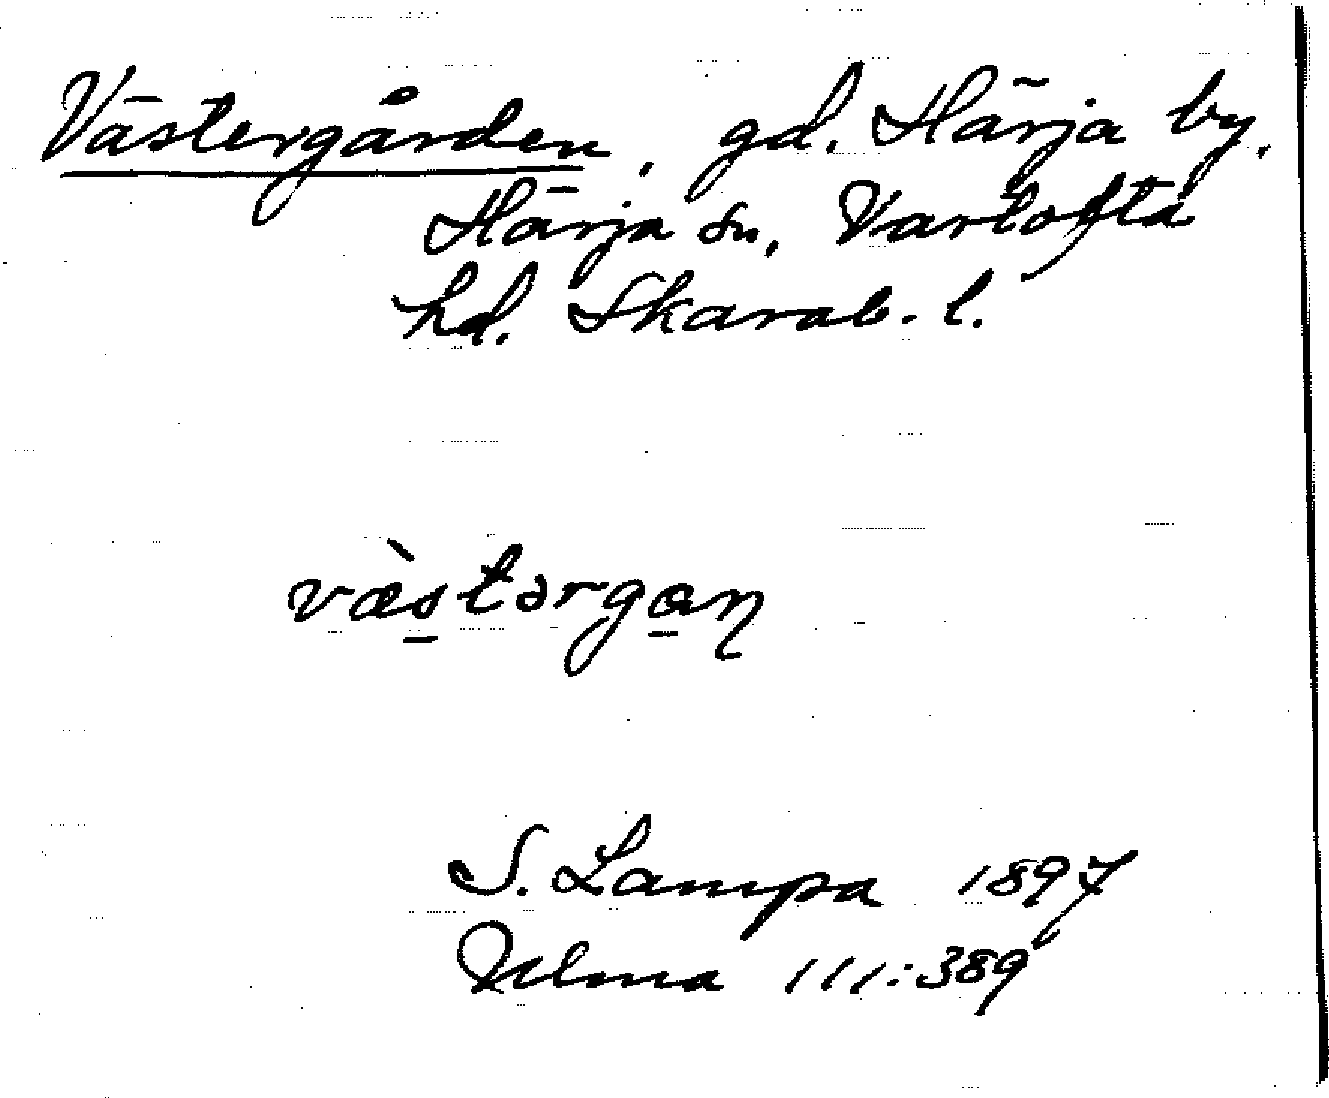 Västergården, gd. Härja by.
Härja sn, Vartofta
hd. Skarab. l.
væ̀s̲tərga̲n
S. Lampa 1897
Ulma 111:389